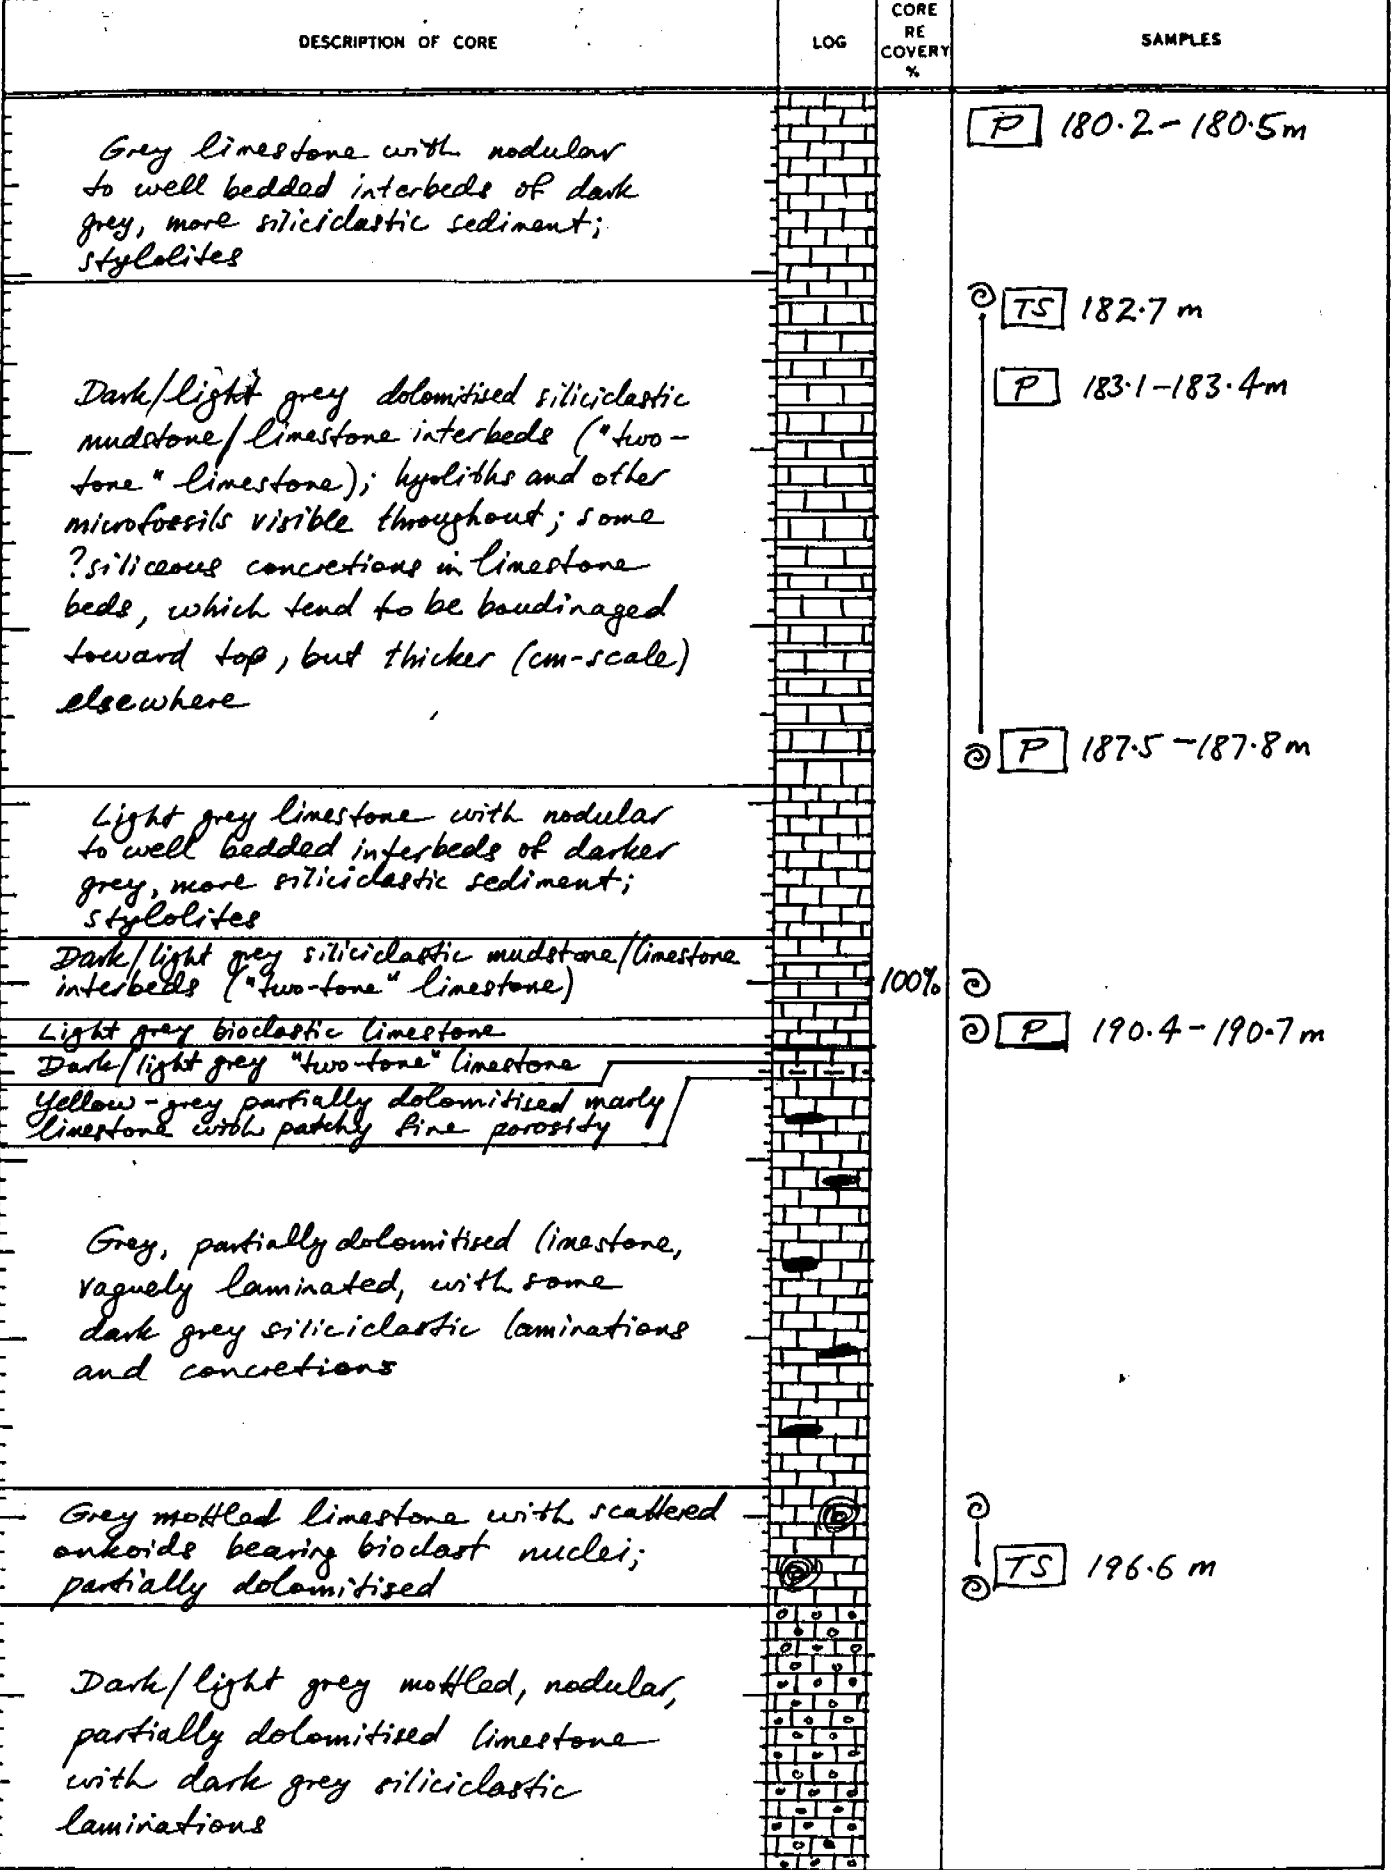 DESCRIPTION OF CORE
LOG
CORE
RE
COVERY
%
SAMPLES
Grey limestone with nodular
to well bedded interbeds of dark
grey, more siliciclastic sediment;
stylolites
P 180.2-180.5m
TS 182.7 m
P 183.1-183.4m
Dark/light grey dolomitised siliciclastic
mudstone/limestone interbeds ("two-
tone" limestone); hyoliths and other
microfossils visible throughout; some
?siliceous concretions in limestone
beds, which tend to be boudinaged
toward top, but thicker (cm-scale)
elsewhere
P 187.5-187.8m
Light grey limestone with nodular
to well bedded interbeds of darker
grey, more siliciclastic sediment;
stylolites
Dark/light grey siliciclastic mudstone/limestone
interbeds ("two-tone" limestone)
100%
Light grey bioclastic limestone
P 190.4-190.7m
Dark/light grey "two-tone" limestone
Yellow-grey partially dolomitised marly
limestone with patchy fine porosity
Grey, partially dolomitised limestone,
vaguely laminated, with some
dark grey siliciclastic laminations
and concretions
Grey mottled limestone with scattered
onkoids bearing bioclast nuclei;
partially dolomitised
TS 196.6 m
Dark/light grey mottled, nodular,
partially dolomitised limestone
with dark grey siliciclastic
laminations